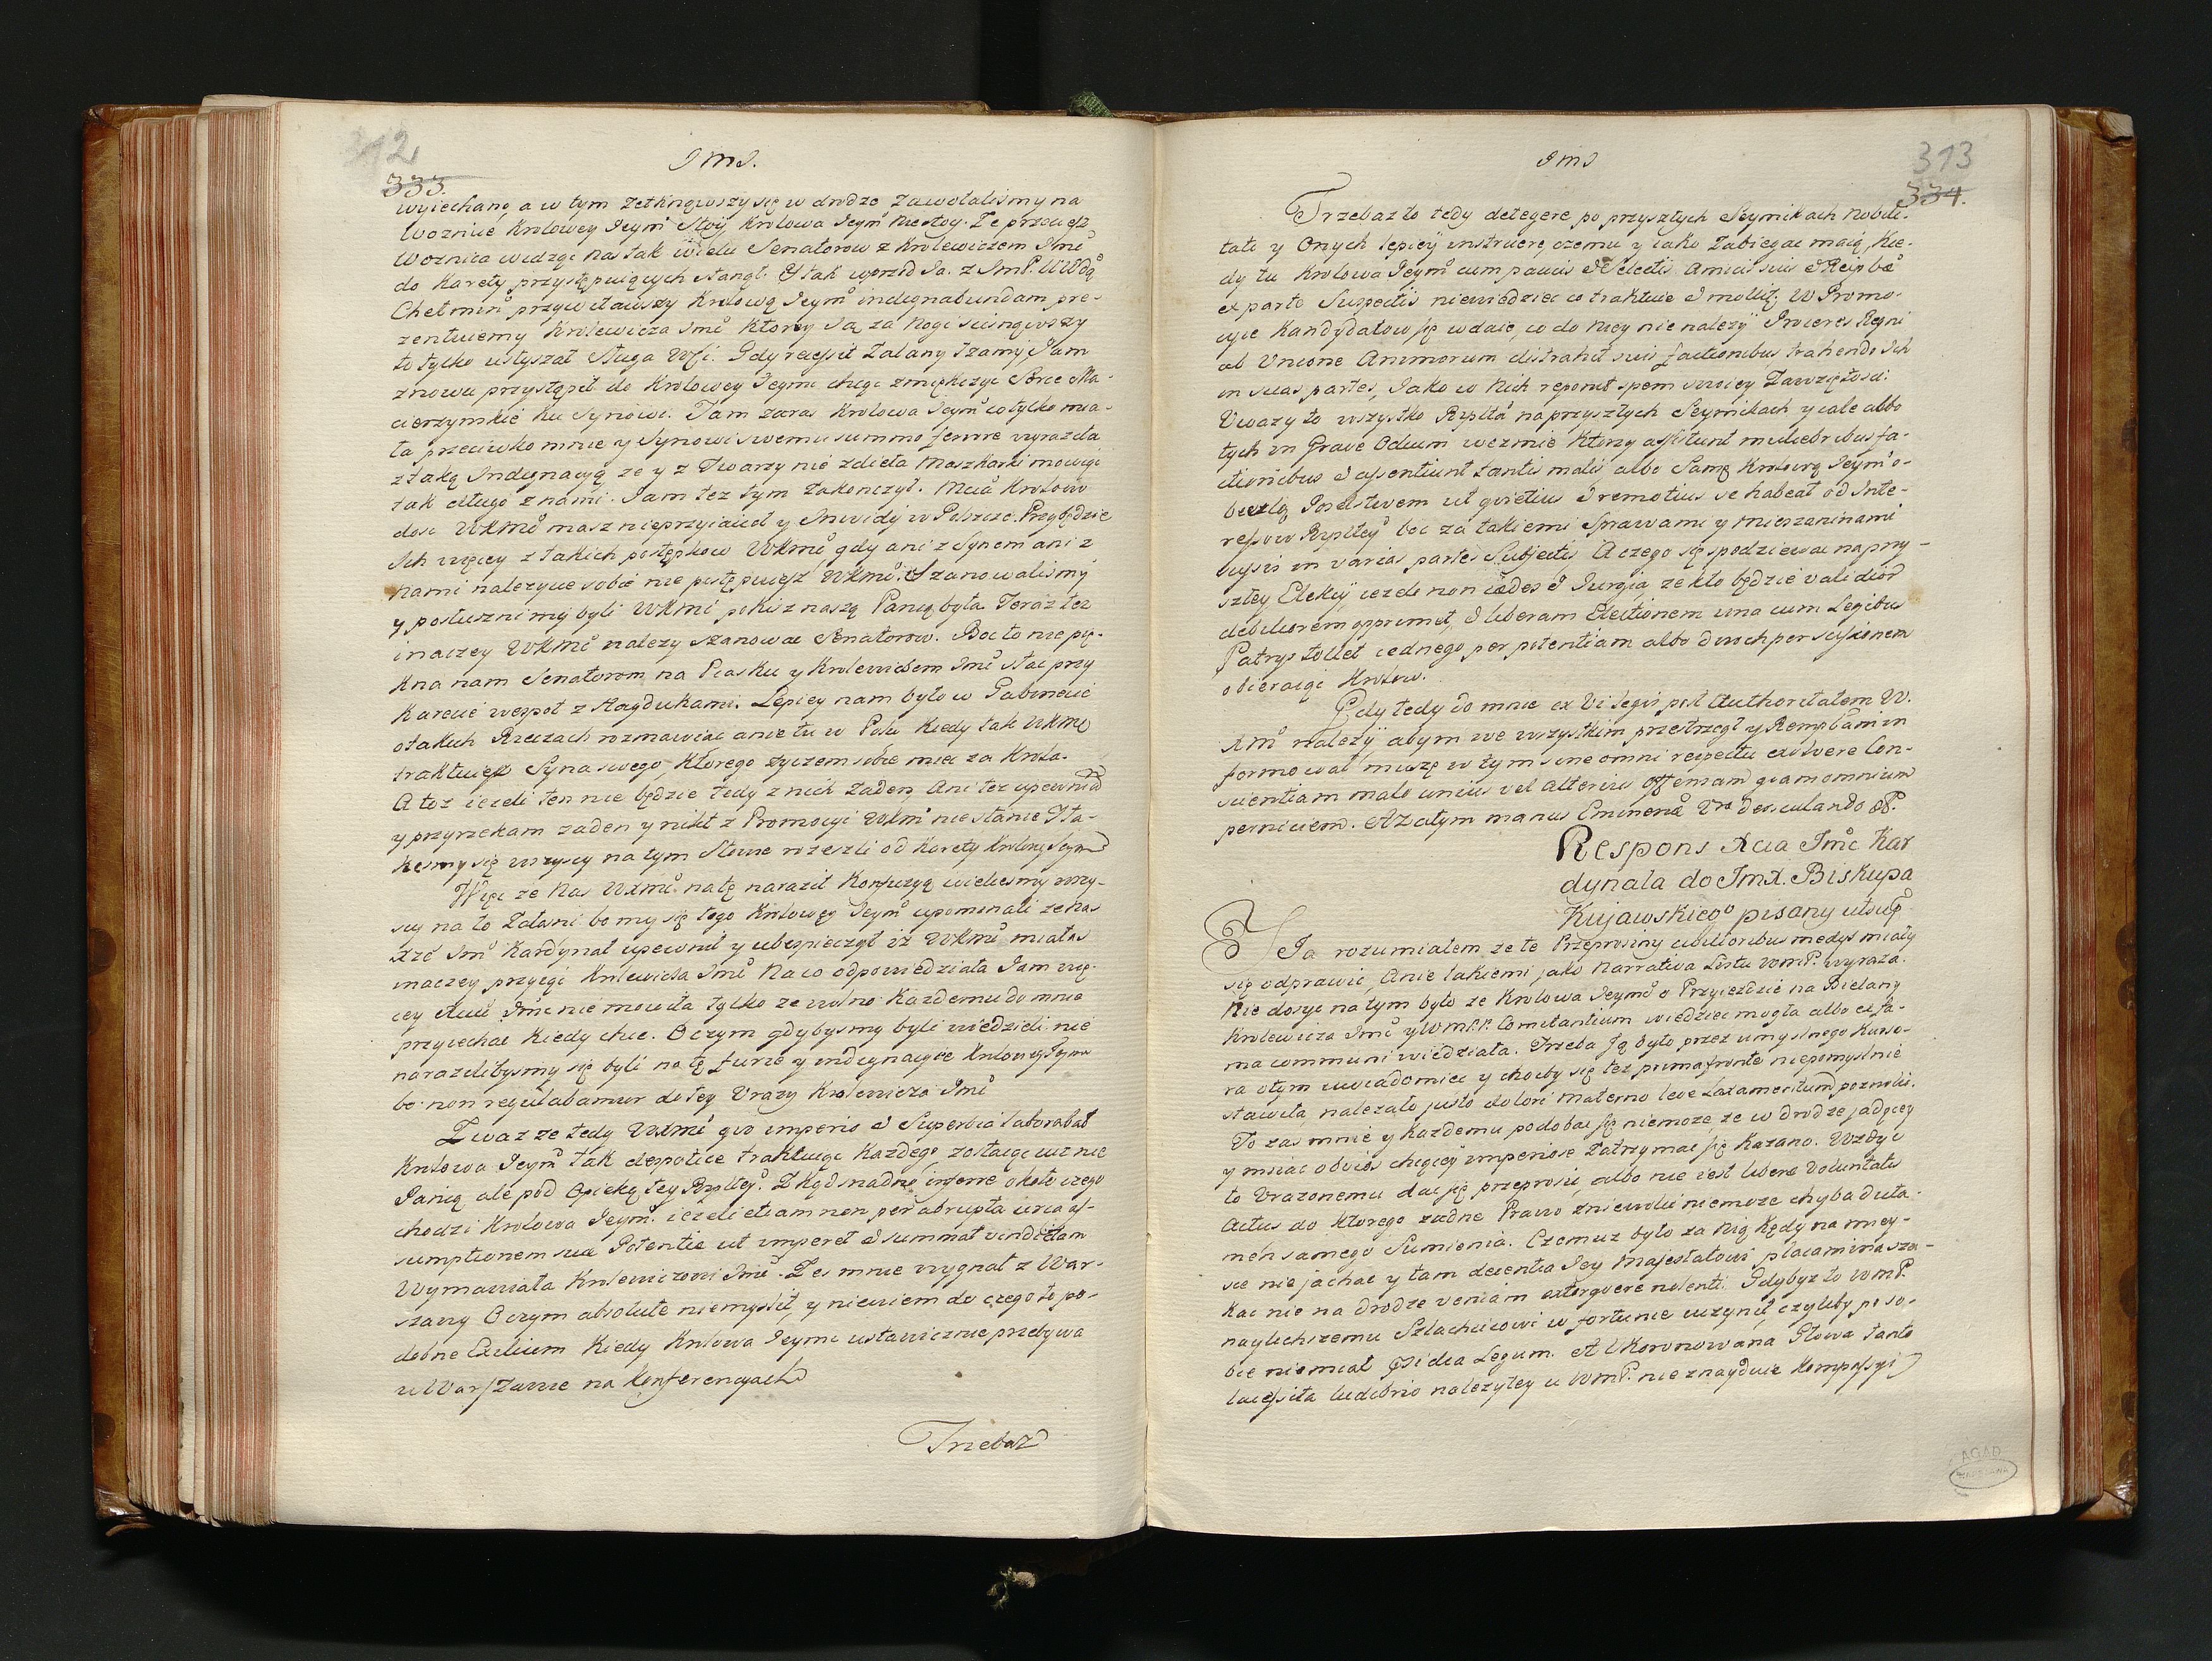 312
333.
JmJ.
wyiechano, a w tym zetknąwszy się w drodze zawołalismy na
Woznice Krolowey Jeym Stoy Krolowa Jeym nie stoy. Ze przecięsz
Woznica widząc nas tak wielu Senatorow z Krolewiczem Jmc
do Karety przystępuiących stanął. Y tak wprzod Ja. z JmP. WWdą
Chełmin przywitawszy Krolową Jeym indignabundam pre-
zentuiemy Krolewicza Jmc Ktorey Ją za Nogi scisnąwszy
to tylko usłyszał sługa WSCi. Gdy recessit Zalany łzamy Jam
znowu przystąpił do Krolowey Jeymc chcąc zmiękczyc Serce Ma-
cierzynskie ku Synowi. Tam zaraz Krolowa Jeym co tylko mia-
ła przeciwko mnie y Synowi swemu summo fervore wyrazała
z taką Indignacyą ze y z Twarzy nie zdieła Maszkarki mowiąc
tak długo z nami. Jam tez tym zakonczył. Mcia Krolowo
dosc WKmc masz nieprzyiacioł y Inwidy w Polszcze. Przybędzie
Ich więcy z takich postępkow WKmc, gdy ani z Synem ani z
Nami nalezycie sobie nie postępuiesz WKmc. Szanowalismy
y posłusznismy byli WKmc pokiś naszą Panią była Teraz tez
inaczey WKmc nalezy szanowac Senatorow. Boc to nie pię-
kna nam Senatorom na Piasku y Krolewiczem Jmc stac przy
Karecie wespoł z Haydukami. Lepiey nam było w Gabinecie
o takich Rzeczach rozmawiac anie tu w Polu Kiedy tak WKmc
traktuiesz Syna swego, Ktorego zyczem sobie miec za Krola.
A toz iezeli ten nie będzie tedy z nich zaden, Ani tez upewniam
y przyrzekam zaden y nikt z Promocyi WKmc nie stanie Y ta-
kesmy się wszyscy na tym Słowie rozeszli od Karety Krolowy Jeym
Więc ze Nas WXmc na tę naraził Konfuzyą wielesmy wszy-
scy na to Załosni bo my się tego Krolowey Jeym upominali ze nas
Xze Jmc Kardynał upewnił y ubezpieczył iz WKmc miałas
inaczey przyiąc Krolewicza Jmc na co odpowiedziała Jam wię-
cey Xciu Jmc nie mowiła tylko ze wolno Kazdemu do mnie
przyiechac Kiedy chce. O czym gdybysmy byli wiedzieli nie
narazilibysmy się byli na tę furię y indignacyiee Krolowey Jeym
bo non regulabamur do tey Urazy Krolewicza Jmc
Zwaz ze tedy WXmc quo imperio & Superbia laborabat
Krolowa Jeym tak despotice traktuiąc Kazdego zostaiąc iuz nie
Panią ale pod Opieką tey Rzpltey. Zkąd snadno inferre około czego
chodzi Krolowa Jeym. iezeli etiam non per abrupta circa as-
sumptionem suae Potentiae ut imperet & summat vindictam
Wymawiała Krolewiczowi Jmc. Zes mnie wygnał z War-
szawy O czym absolute niemyslił, y niewiem do czego to po-
dobne Exilium Kiedy Krolowa Jeymc ustawicznie przebywa
w Warszawie na Konferencyach
Trzebaz
JmJ
313
334.
Trzebaz to tedy detegere po przyszłych Seymikach Nobili-
tati y Onych lepieÿ instruere, czemu y iako zabiegac maią, Kie-
dy tu Krolowa Jeym cum paucis & Selectis Amicis suis & Reipbae
ex parte Suspectis niewiedziec co traktuie & molitur, w Promo-
cyie Kandydatow się wdaie, co do Niey nie nalezy Proceres Regni
ab Unione Animorum distrahit suis factionibus trahendo Ich
in suas partes, Jako w Nich reponit spem swoiey Zawziętosci.
Uwazy to wszystko Rzplta na przyszłych Seymikach y całe albo
tych in Grave Odium wezmie Ktorzy assistunt muliebribus fa-
ctionibus & assentiunt tantis malis albo Samę Krolową Jeym o-
beszlę Poselstwem ut quietius & remotius se habeat od Inte-
ressow Rzpltey boc za takiemi Sprawami y mieszaninami
scissis in varias partes Subjectis A czego się spodziewac na przy-
szłey Elekcyi iezeli non caedes & Jurgia, ze kto będzie validior
debiliorem opprimet, & liberam Electionem una cum Legibus
Patrys tollet iednego per potentiam albo dwoch per scissionem
obieraiąc Krolow.
Gdy tedy do mnie ex Vi Legis post Authoritatem W.
Xmc nalezy abym we wszystkim przestrzegł y Rempblicam in-
formował muszę w tym sine omni respectu exolvere Con-
scientiam malo unius vel alterius offensam quam omnium
perniciem. A zatym manus Eminenae Vrae deosculando &P.
Respons Xcia Jmc Kar
dynała do Jmx. Biskupa
Kujawskiego pisany ut supr
Ja rozumiałem ze te Przeprosiny ubilioribus modys miały
się odprawic, Anie takiemi jako Narrativa Listu WmP. wyraza.
Nie dosyc na tym było ze Krolowa Jeymc o Przyiezdzie na Bielany
Krolewicza Jmc y WmPP. Comitantium wiedziec mogła albo ex fa-
ma communi wiedziała. Trzeba Ją było przez umyslnego Kurso-
ra o tym uwiadomic y choćby się tez prima fronte niepomyslnie
stawiła, nalezało justo dolori materno leve Laxamentum pozwolic.
To zas mnie y Kazdemu podobac się niemoze, ze w drodze jadącey
y miiac obvios chcącey imperiose Zatrzymac się Kazano. Wzdyc
to Urazonemu dac się przeprosić, albo nie iest libera Voluntatis
Actus do ktorego zadne Prawo zniewolic niemoze chyba dicta-
men samego Sumienia. Czemuz było za Nią kędy na miey-
sce nie jachac y tam decentia Jey Majestatowi placamina szu-
kac nie na drodze veniam extorquere nolenti. Gdybyz to WmP.
naylichszemu Szlachcicowi w fortunie uczynił, czyliby po so-
bie niemiał Praesidia Legum. A Ukoronowana Głowa tanto
lacessita ludibrio nalezytey u WmP. nie znayduie kompassyi
AGAD
WARSZAWA